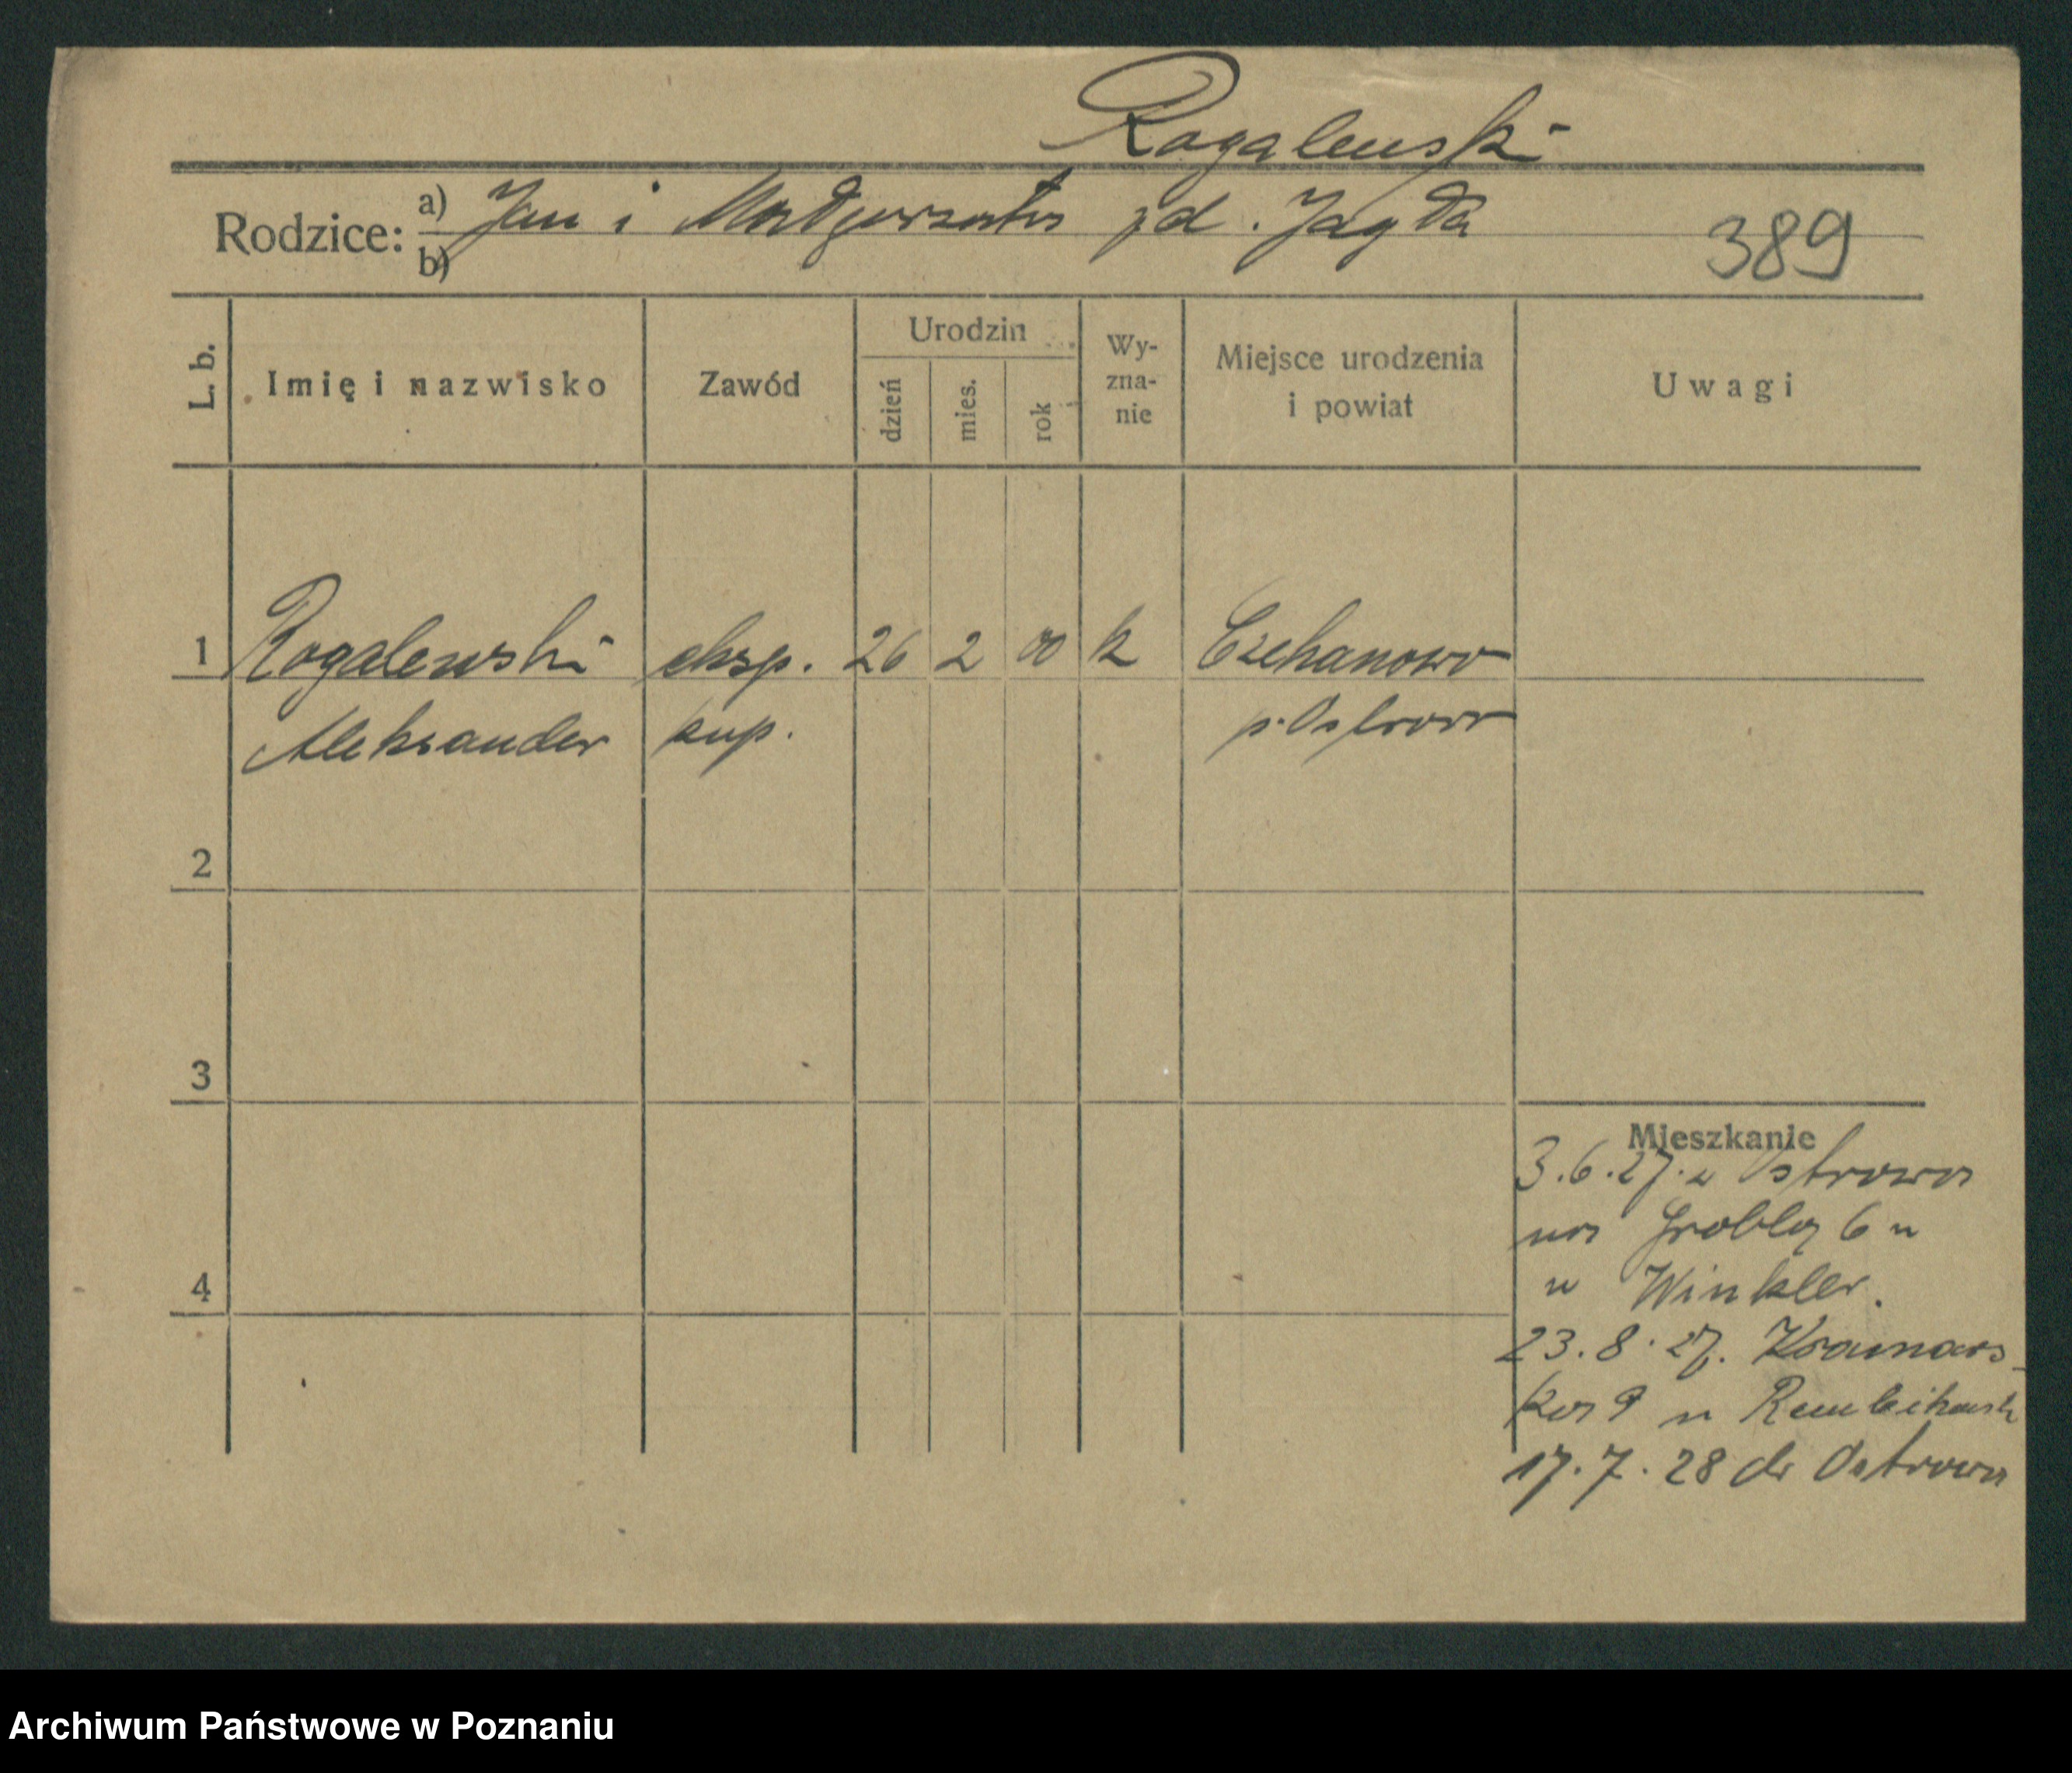 Rogalewski
Rodzice: a) Jan i Małgorzata zd. Jagła
b)
389
L. b.
Imię i nazwisko
Zawód
Urodzin
dzień
mies.
rok
Wy-
zna-
nie
Miejsce urodzenia
i powiat
Uwagi
1 Rogalewski eksp. 26 2 00 k Czekanowo
Aleksander kup. p. Ostrow
2
3
4
Mieszkanie
3.6.27. z Ostrowa
na Groblą 6 u
u Winkler.
23.8.27. Kramars-
ka 9 u
17.7.28 do Ostrowa
Archiwum Państwowe w Poznaniu